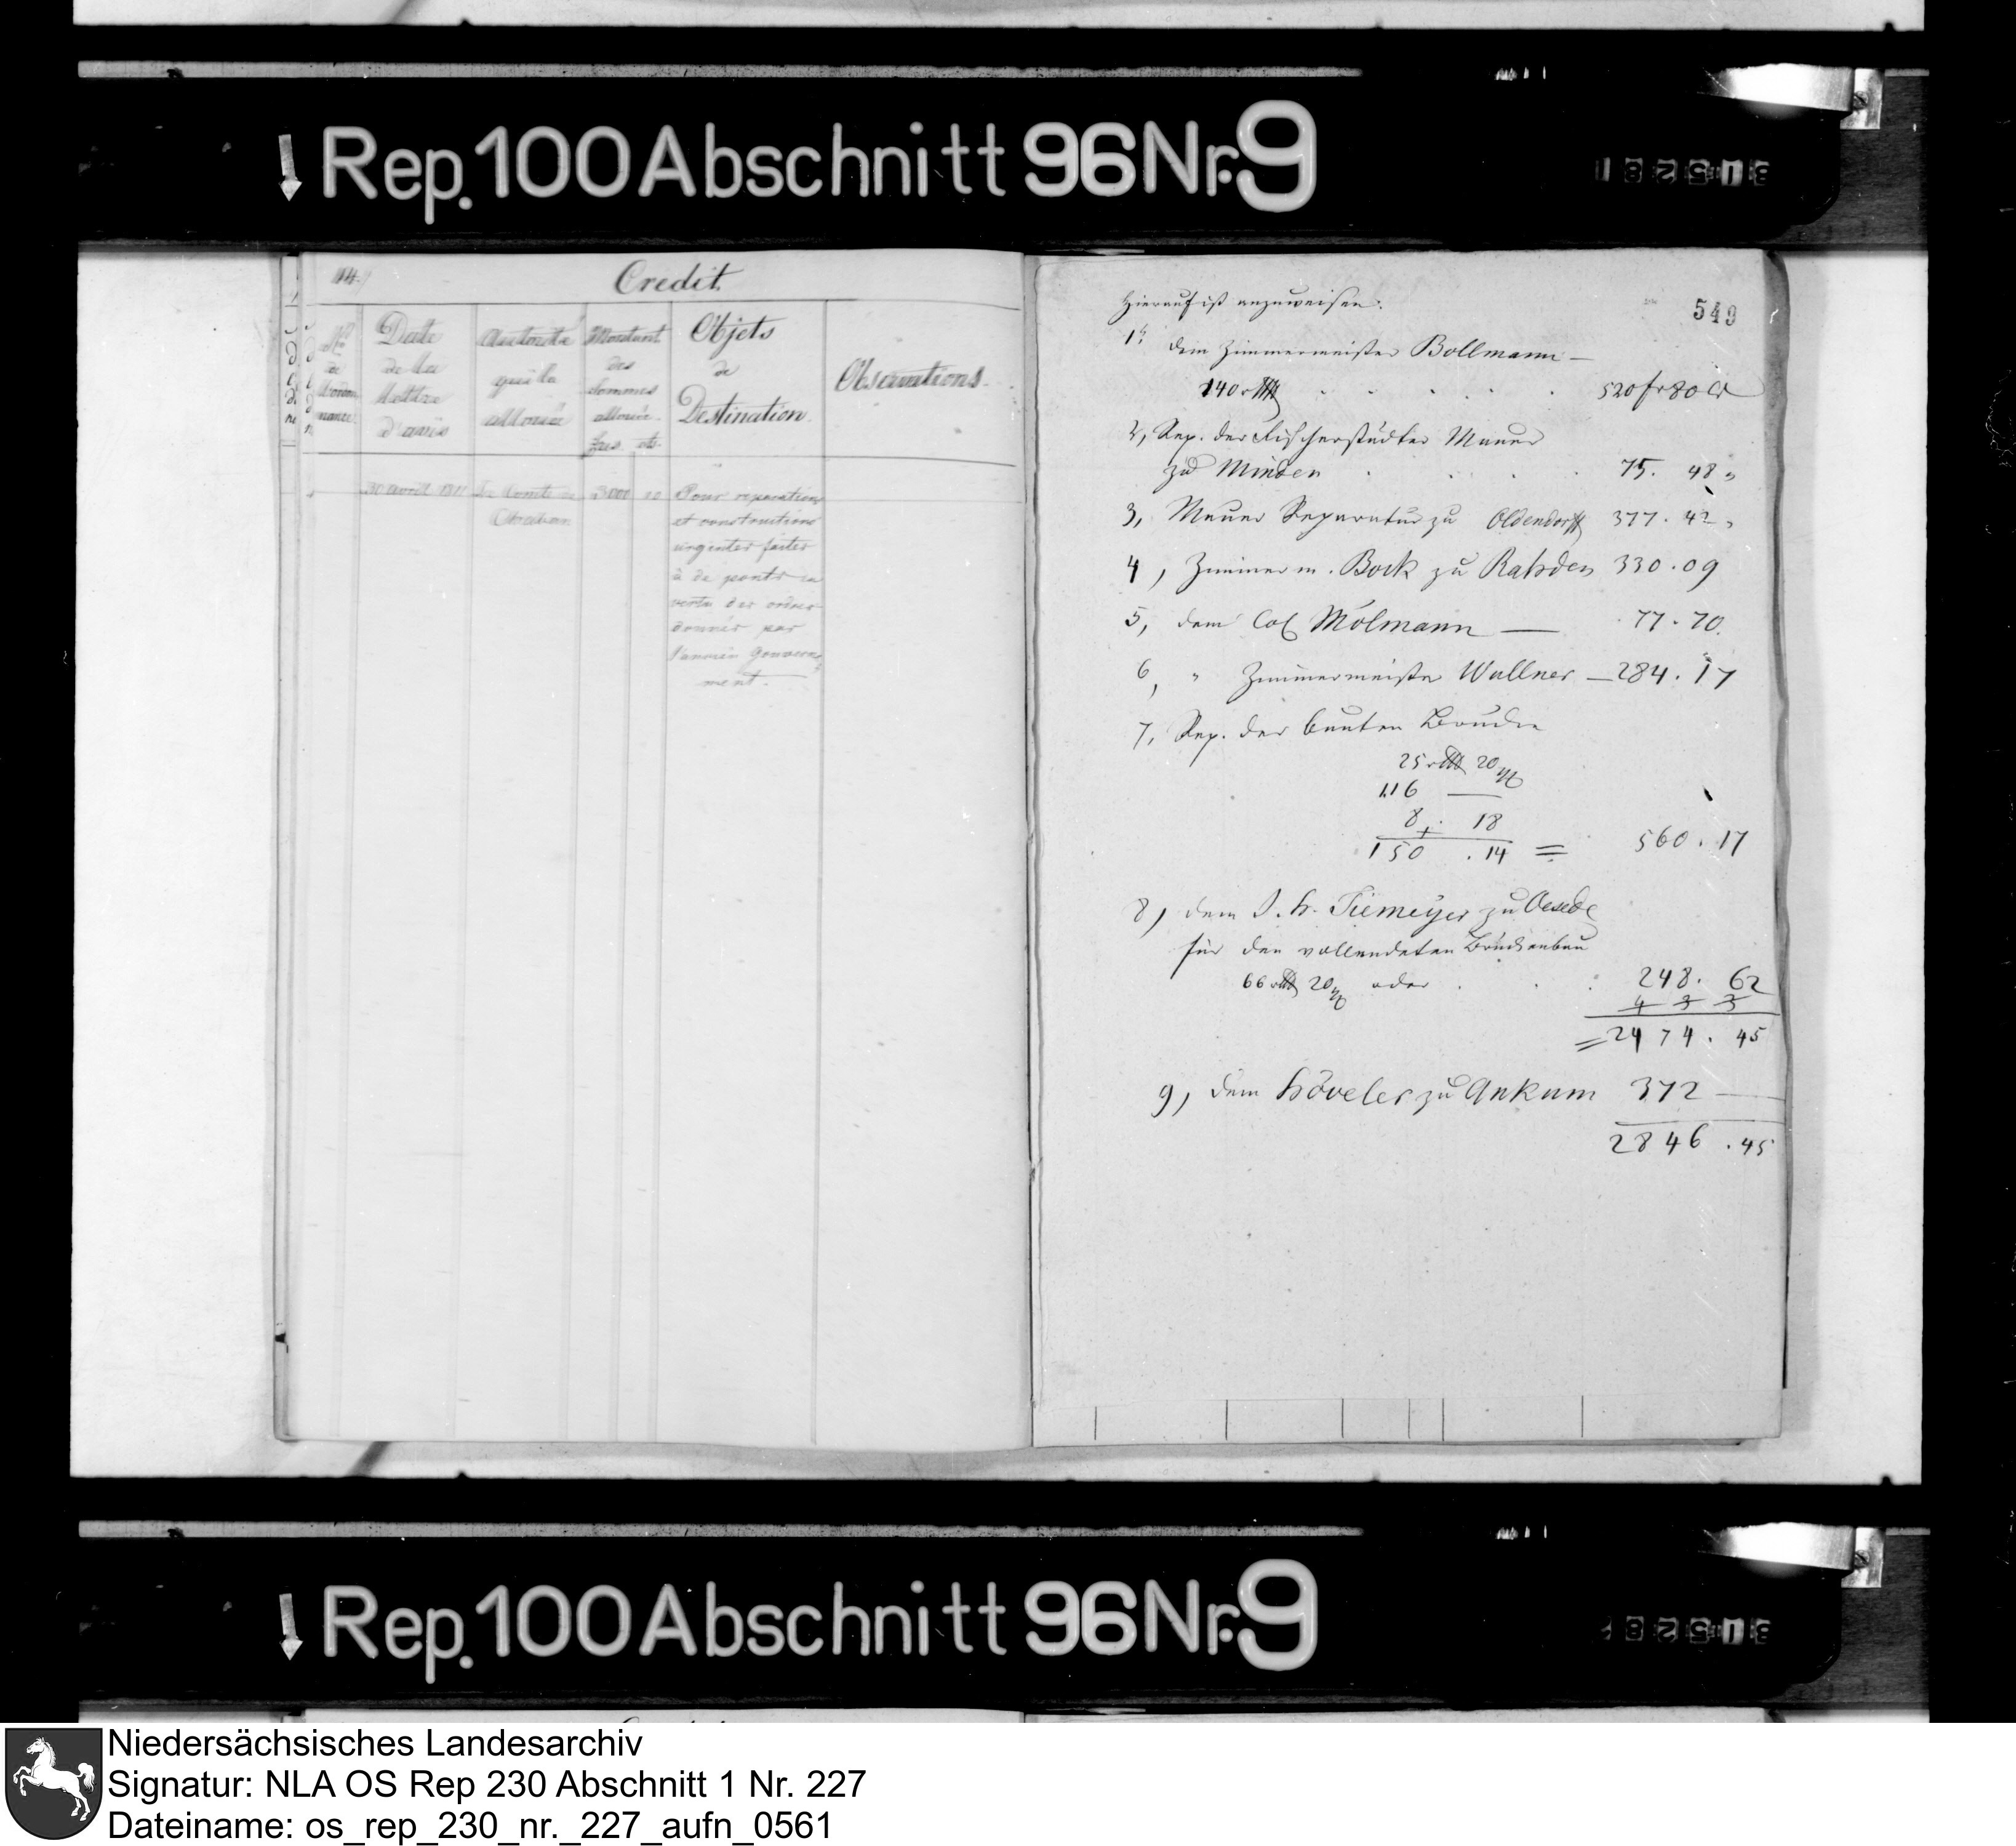 Rep. 100 Abschnitt 96 Nr. 9
Credit
Date
de la
Lettre
d'avis
Autorité
qui l'a
allouée
Montant
des
Sommes
allouées.
frcs. cts.
Objets
de
Destination.
Observations.
30 avril 1811
Le Comte de
Chaban
3000
Pour reparations
et constructions
urgentes faites
à de ponts en
vertu des ordres
donnés par
l'ancien Gouverne
ment.
549
Hierauf ist anzuweisen:
1,
dem Zimmermeister Bollmann —
140 rthl 520 fr 80 Ct
2, Rep. der Fischerstädter Mauer
zu Minden 75. 48 "
3, Mauer Reparatur zu Oldendorff 377. 42 "
4, Zimmerm. Bock zu Rahden 330. 09
5, dem Col. Mölmann — 77. 70.
6, " Zimmermeister Wullner — 284. 17
7, Rep. der bunten Brücke
25 rthl 20
116 —
8. 18
150. 14 = 560. 17
8, dem J. H. Tiemeyer zu Oesede
für den vollendeten Brückenbau
66 rthl 20 oder 248. 62
4 3 3
= 2474. 45
9, dem Höveler zu Ankum 372 —
2846. 45
Rep. 100 Abschnitt 96 Nr. 9
Niedersächsisches Landesarchiv
Signatur: NLA OS Rep 230 Abschnitt 1 Nr. 227
Dateiname: os_rep_230_nr._227_aufn_0561